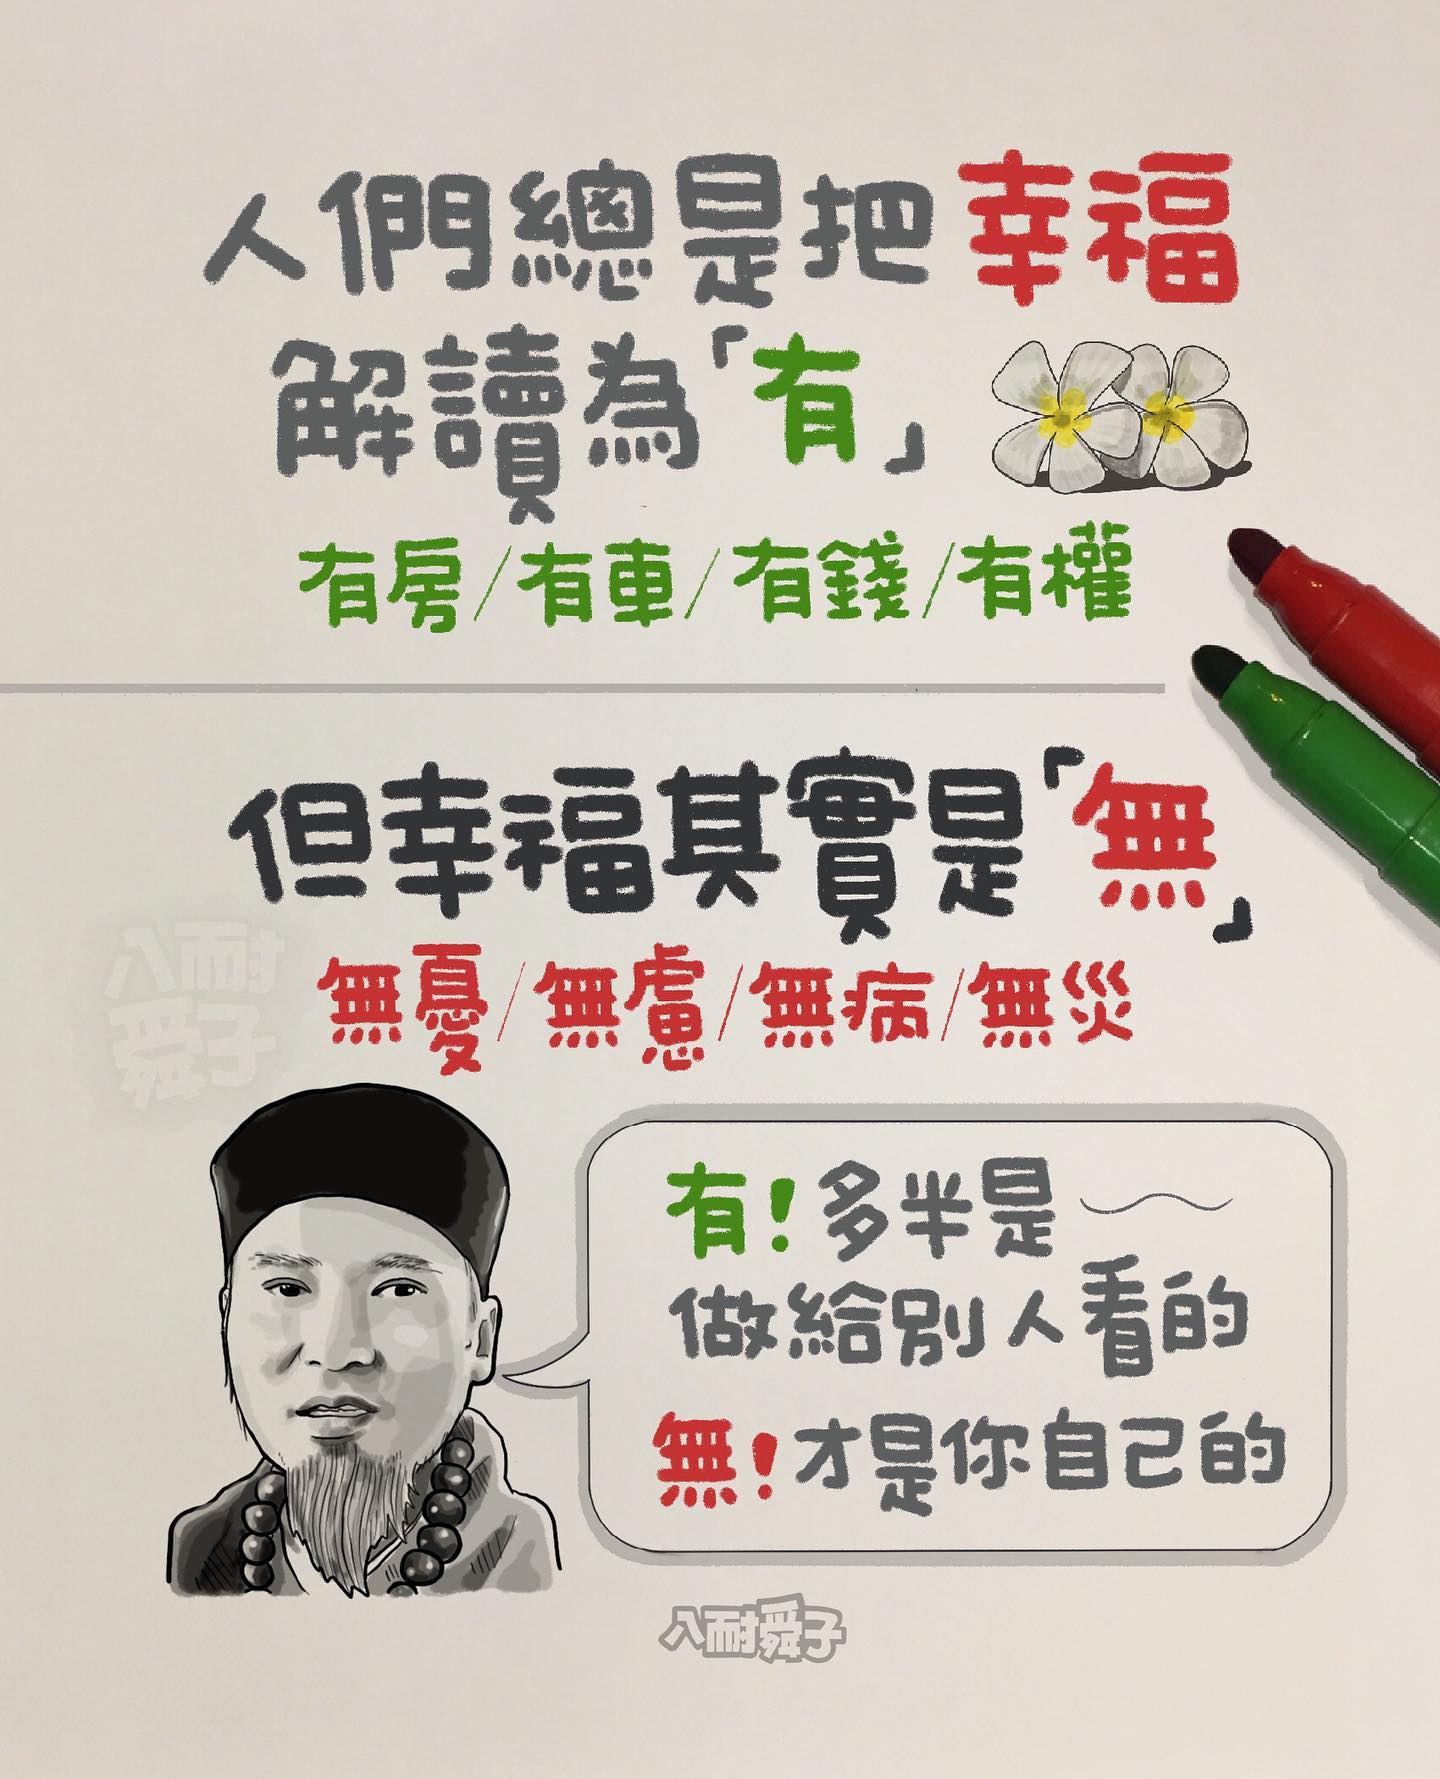 人們總是把幸福
解讀為「有」
有房/有車/有錢/有權
但幸福其實是「無」
無憂/無慮/無病/無災
八耐
舜子
有!多半是
做給別人看的
無!才是你自己的
八耐舜子